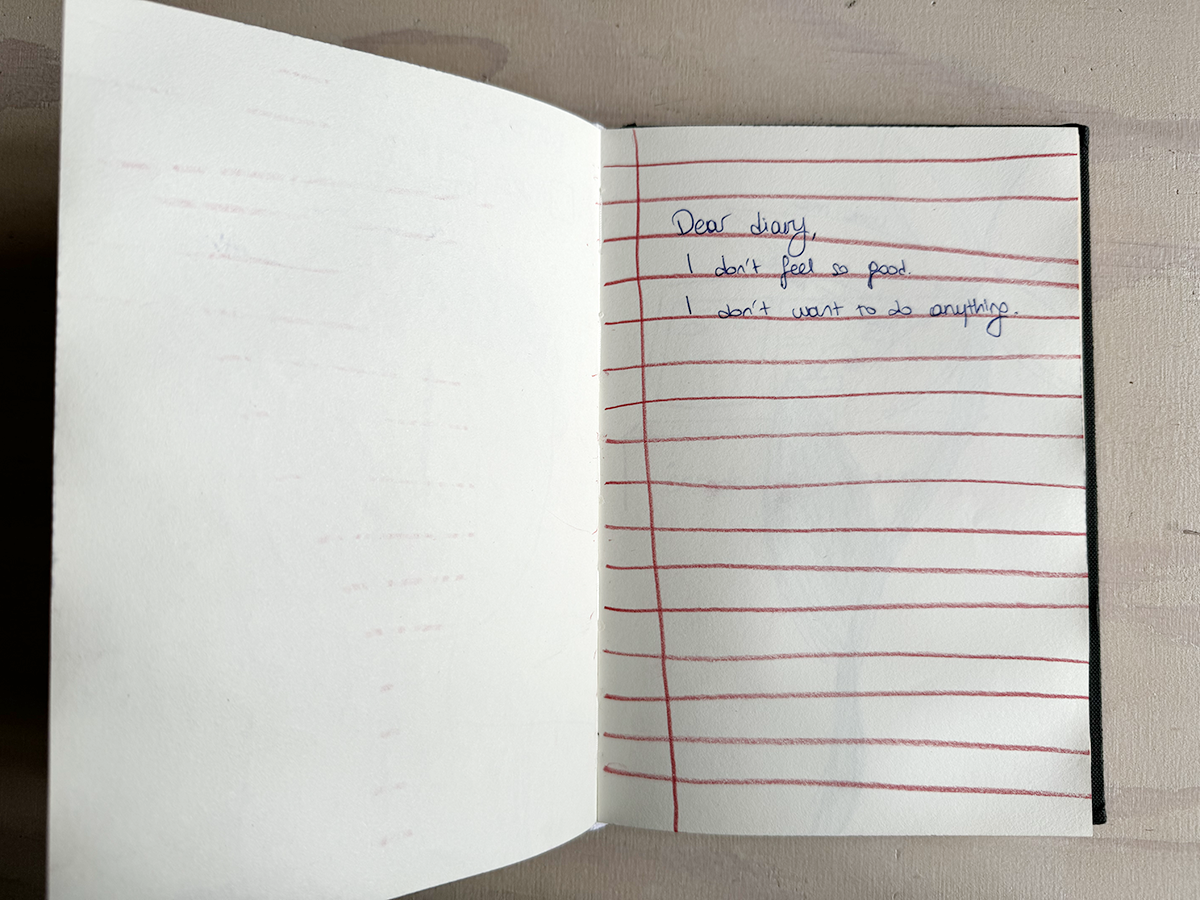 Dear diary,
I don't feel so good.
I don't want to do anything.